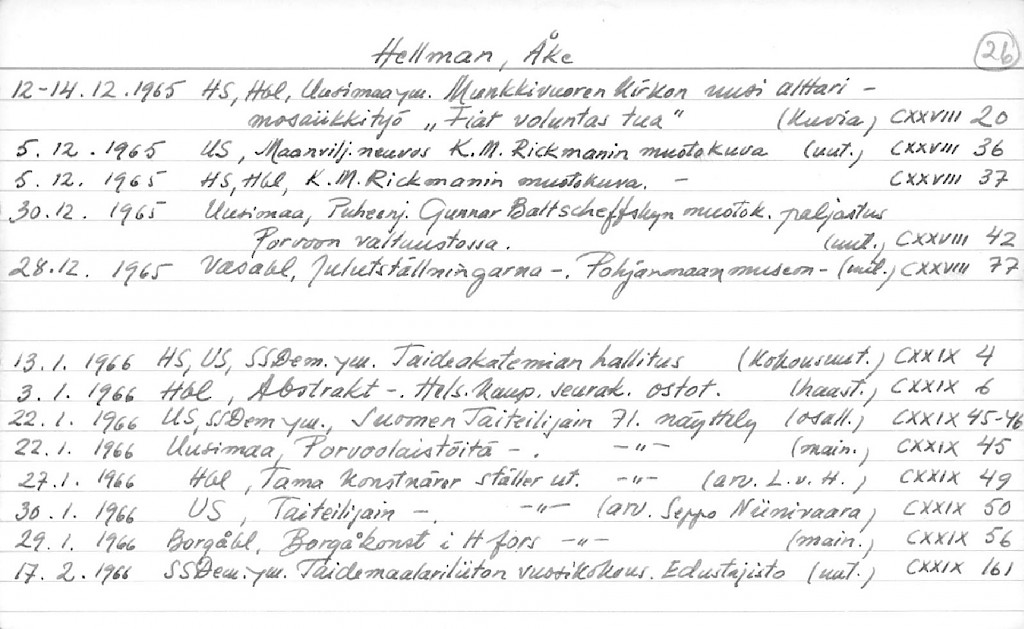 Hellman, Åke
26
12-14.12.1965 HS, Hbl, Uusimaa ym. Munkkivuoren kirkon uusi alttari -
mosaiikkityö „Fiat voluntas tua" (kuvia) CXXVIII 20
5.12.1965 US, Maanvilj.neuvos K.M. Rickmanin muotokuva (uut.) CXXVIII 36
5.12.1965 HS, Hbl, K.M. Rickmanin muotokuva. - CXXVIII 37
30.12.1965 Uusimaa, Puheenj. Gunnar Baltscheffskyn muotok. paljastus
Porvoon valtuustossa. (uut.) CXXVIII 42
28.12.1965 Vasabl, Julutställningarna -. Pohjanmaan museon - (uut.) CXXVIII 77
13.1.1966 HS, US, SSDem. ym. Taideakatemian hallitus (kokousuut.) CXXIX 4
3.1.1966 Hbl, Abstrakt -. Hels. kaup. seurak. ostot. (haast.) CXXIX 6
22.1.1966 US, SSDem ym., Suomen Taiteilijain 71. näyttely (osall.) CXXIX 45-46
22.1.1966 Uusimaa, Porvoolaistöitä -. -"- (main.) CXXIX 45
27.1.1966 Hbl, Tama konstnärer ställer ut. -"- (arv. L.v.H.) CXXIX 49
30.1.1966 US, Taiteilijain -. -"- (arv. Seppo Niinivaara) CXXIX 50
29.1.1966 Borgåbl, Borgåkonst i H:fors -"- (main.) CXXIX 56
17.2.1966 SSDem. ym. Taidemaalariliiton vuosikokous. Edustajisto (uut.) CXXIX 161